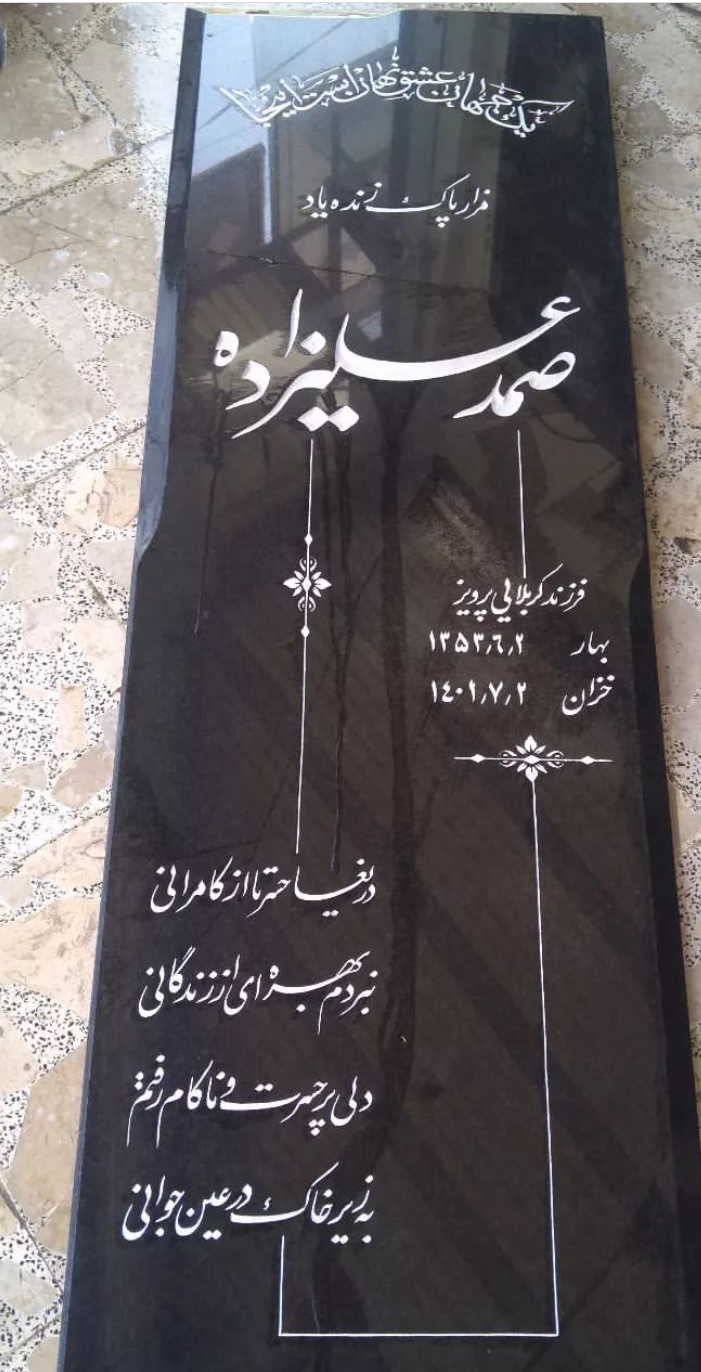 یک جهان عشق نهان است اینجا
مزار پاک زنده یاد
صمد علیزاده
فرزند کربلایی پرویز
بهار ۱۳۵۳٫۶٫۲
خزان ۱۴۰۱٫۷٫۲
دریغا حسرتا از کامرانی
نبردم بهره ای از زندگانی
دلی پر حسرت و ناکام رفتم
به زیر خاک در عین جوانی